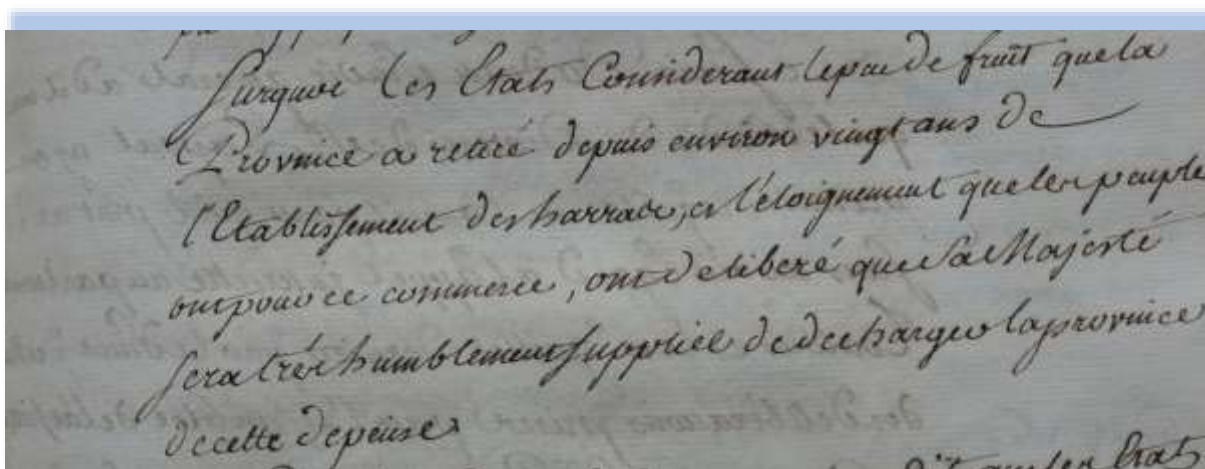 Surquoi les Etats Considerant le peu de fruit que la
Province a retiré depuis environ vingt ans de
l'Etablissement des harras, et l'éloignement que les peuple
ont pour ce commerce, ont deliberé que Sa Majesté
sera très humblement suppliée de decharger la province
de cette depense
Etats